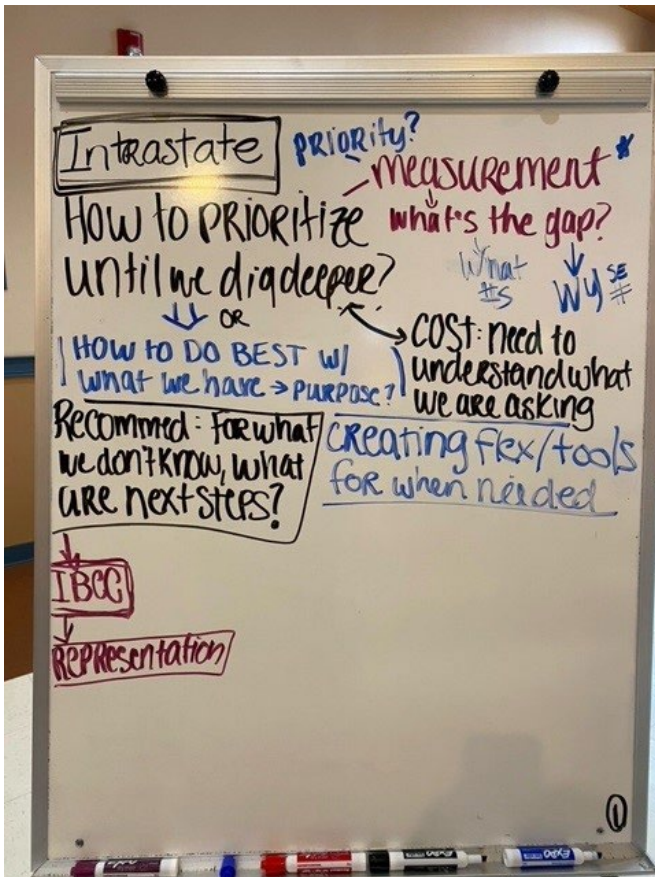 Intrastate
PRIORITY?
measurement *
How to PRIORITIZE
until we dig deeper?
what's the gap?
What
#s
Wy SE
#
OR
HOW TO DO BEST W/
what we have → PURPOSE?
COST: need to
understand what
we are asking
Recommed: For what
we don't know, what
are next steps?
Creating flex/tools
for when needed
IBCC
REPResentation
1
EXPO
EXPO